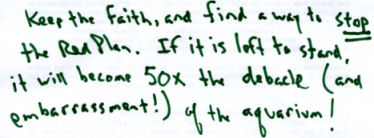 Keep the faith, and find a way to stop
the Red Plan. If it is left to stand,
it will become 50x the debacle (and
embarrassment!) of the aquarium!